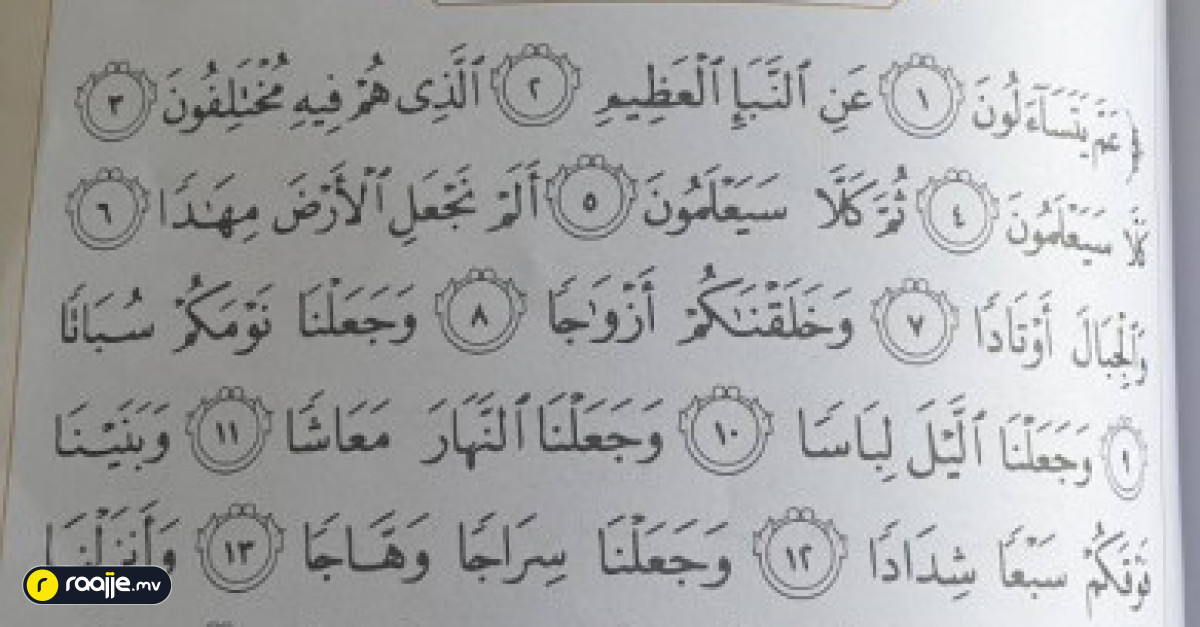 ﴿ عَمَّ يَتَسَآءَلُونَ ١ عَنِ ٱلنَّبَإِ ٱلْعَظِيمِ ٢ ٱلَّذِى هُمْ فِيهِ مُخْتَلِفُونَ ٣
كَلَّا سَيَعْلَمُونَ ٤ ثُمَّ كَلَّا سَيَعْلَمُونَ ٥ أَلَمْ نَجْعَلِ ٱلْأَرْضَ مِهَـٰدًا ٦
وَٱلْجِبَالَ أَوْتَادًا ٧ وَخَلَقْنَـٰكُمْ أَزْوَٰجًا ٨ وَجَعَلْنَا نَوْمَكُمْ سُبَاتًا
٩ وَجَعَلْنَا ٱلَّيْلَ لِبَاسًا ١٠ وَجَعَلْنَا ٱلنَّهَارَ مَعَاشًا ١١ وَبَنَيْنَا
فَوْقَكُمْ سَبْعًا شِدَادًا ١٢ وَجَعَلْنَا سِرَاجًا وَهَّاجًا ١٣ وَأَنزَلْنَا
r raajje.mv